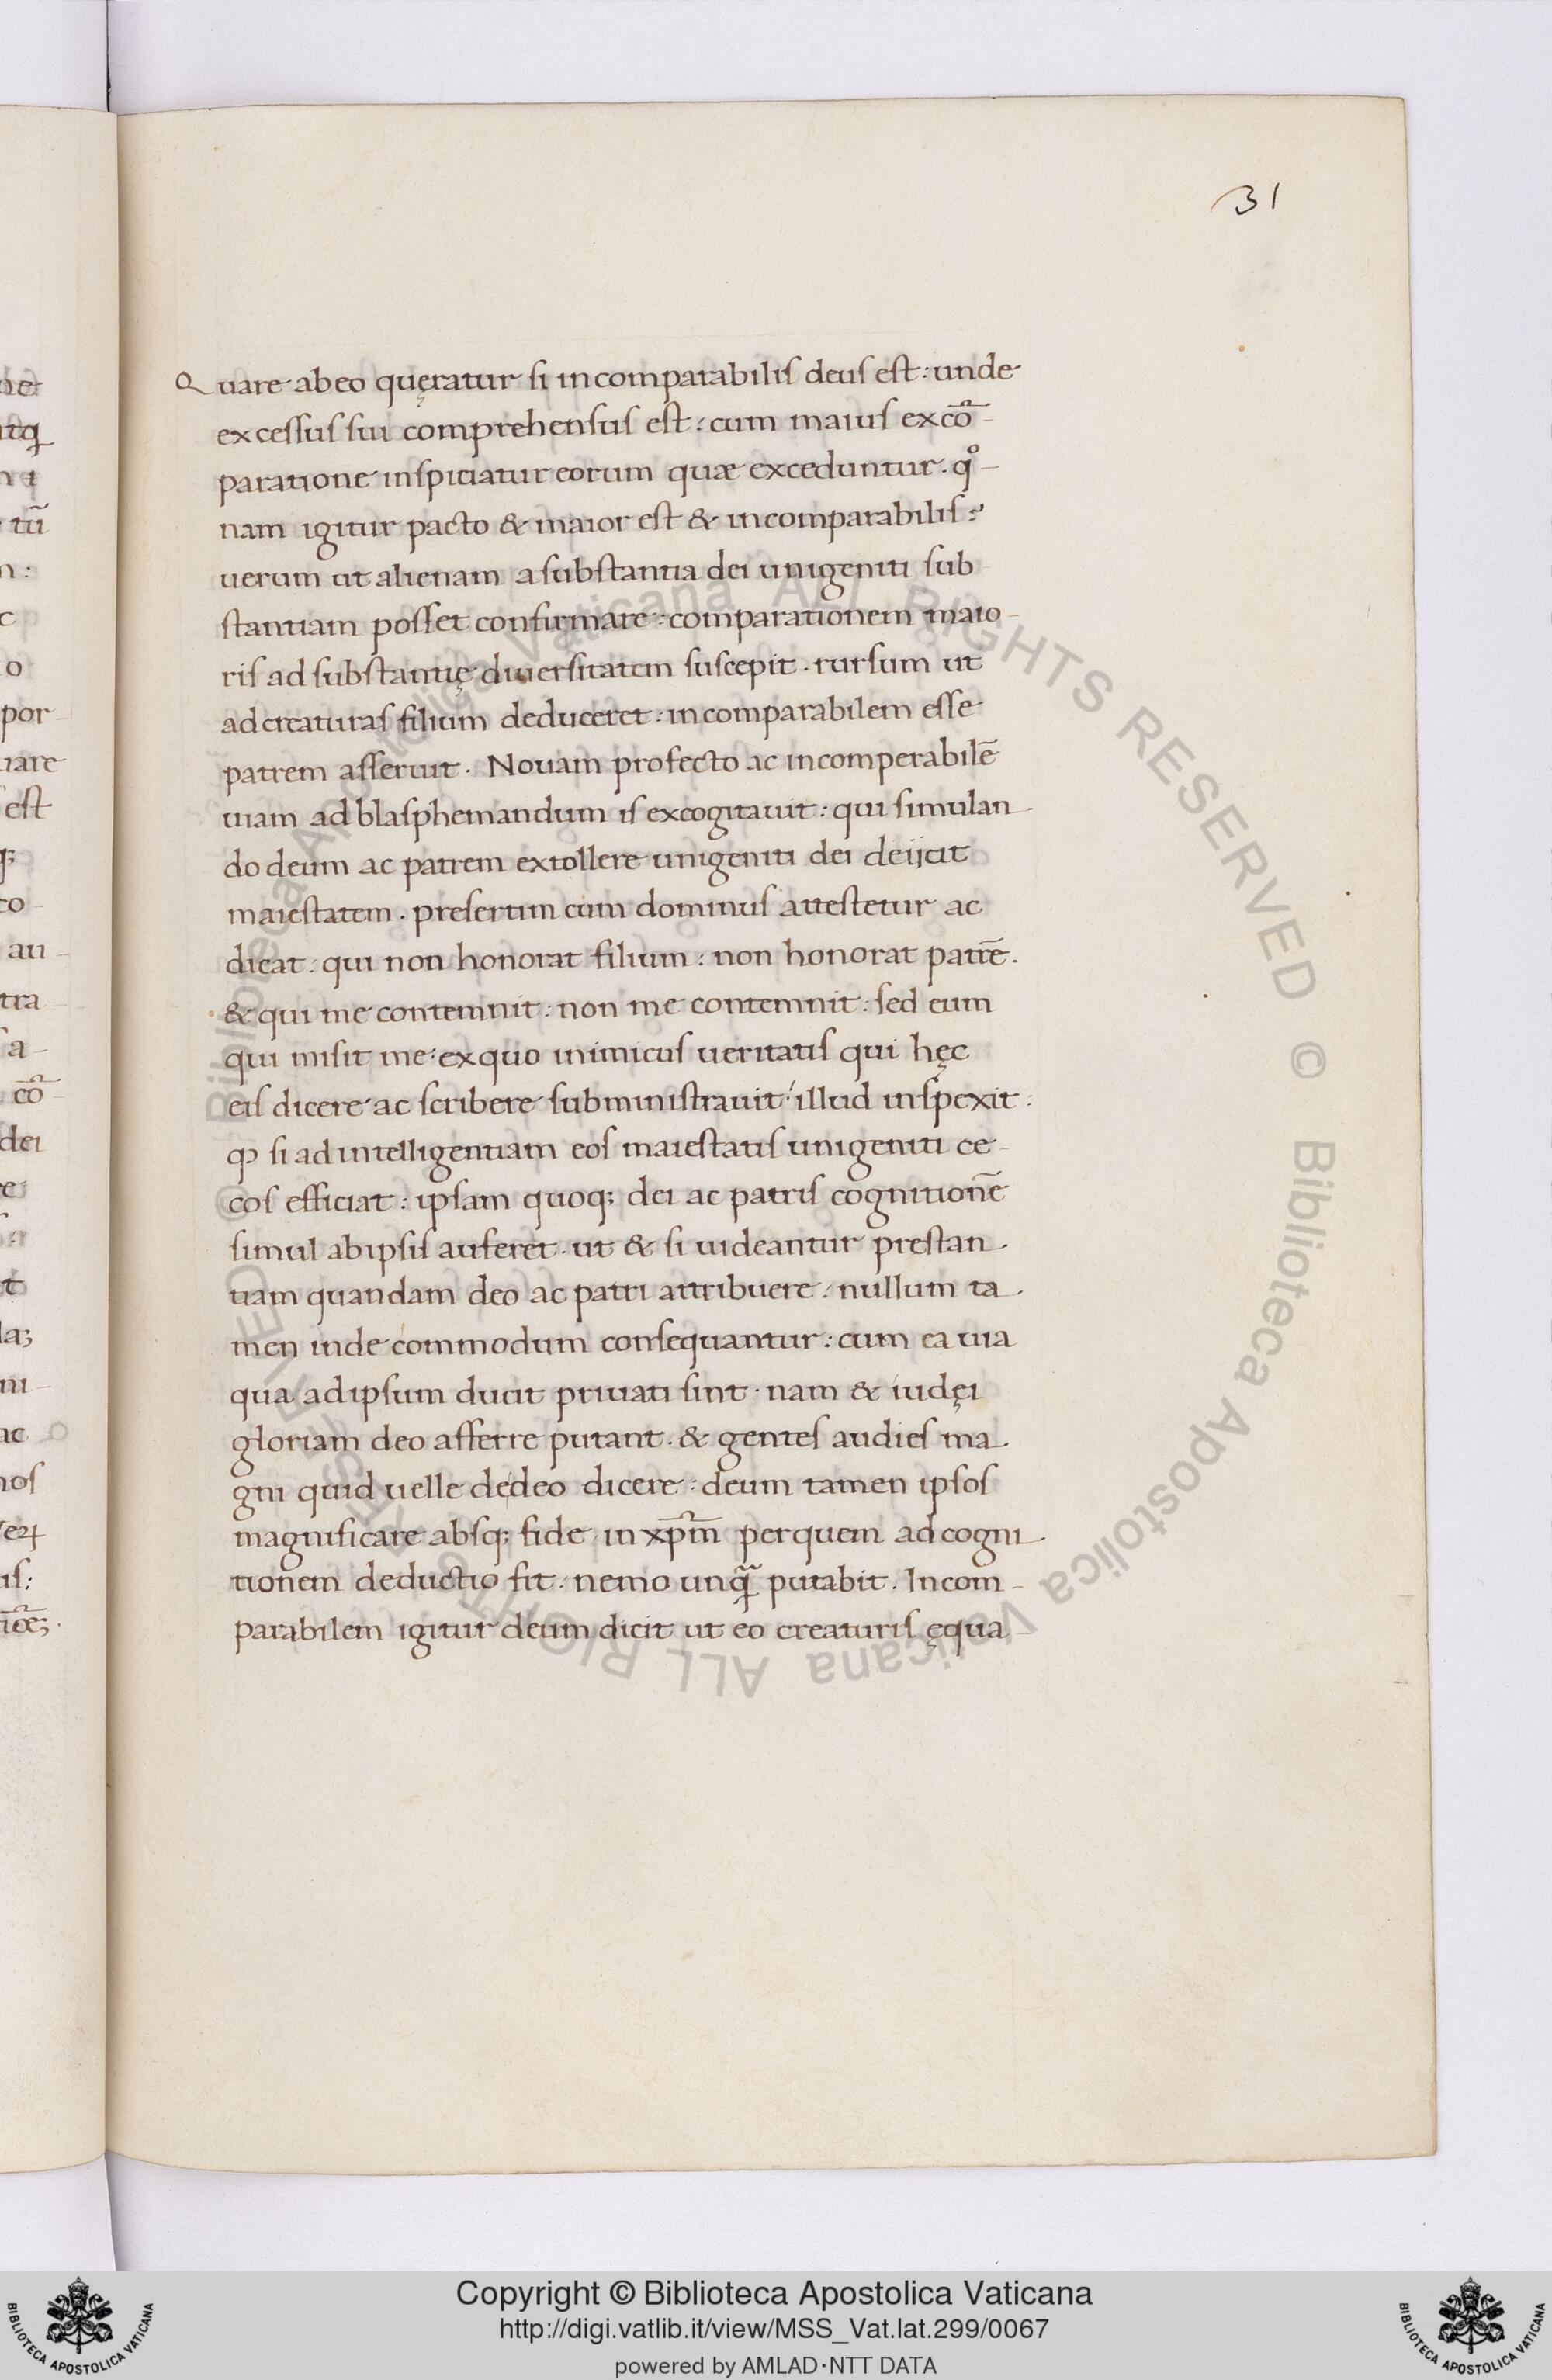 31
Quare ab eo quęratur si incomparabilis deus est: unde
excessus sui comprehensus est: cum maius ex cō-
paratione inspiciatur eorum quæ exceduntur. qͦ-
nam igitur pacto & maior est & incomparabilis?
uerum ut alienam a substantia dei unigeniti sub
stantiam posset confirmare: comparationem maio-
ris ad substantię diuersitatem suscepit. rursum ut
ad creaturas filium deduceret: incomparabilem esse
patrem asseruit. Nouam profecto ac incomperabilē
uiam ad blasphemandum is excogitauit: qui simulan-
do deum ac patrem extollere unigeniti dei deijcit
maiestatem. presertim cum dominus attestetur ac
dicat: qui non honorat filium: non honorat patrē.
& qui me contemnit: non me contemnit: sed eum
qui misit me: ex quo inimicus ueritatis qui hęc
eis dicere ac scribere subministrauit: illud inspexit:
ꝙ si ad intelligentiam eos maiestatis unigeniti ce-
cos efficiat: ipsam quoq; dei ac patris cognitionē
simul ab ipsis auferet. ut & si uideantur prestan-
tiam quandam deo ac patri attribuere: nullum ta-
men inde commodum consequantur: cum ea uia
qua ad ipsum ducit priuati sint. nam & iudęi
gloriam deo afferre putant. & gentes audies ma-
gni quid uelle de deo dicere: deum tamen ipsos
magnificare absq; fide in xp̄m per quem ad cogni-
tionem deductio fit. nemo unq̄ putabit. Incom-
parabilem igitur deum dicit ut eo creaturis ęqua-
Copyright © Biblioteca Apostolica Vaticana
http://digi.vatlib.it/view/MSS_Vat.lat.299/0067
powered by AMLAD·NTT DATA